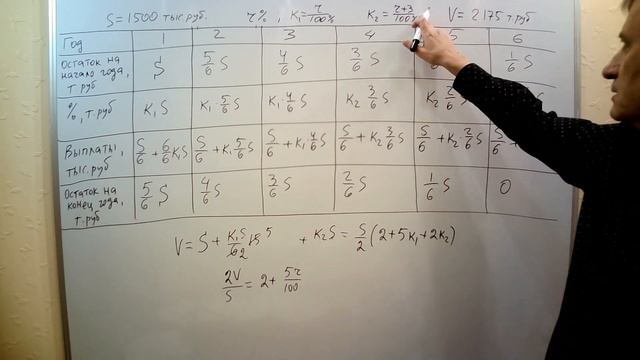 S = 1500 тыс.руб. r%, K₁ = r/100% K₂ = r+3/100% V = 2175 т.руб
Год 1 2 3 4 5 6
Остаток на начало года, т.руб S 5/6 S 4/6 S 3/6 S 1/6 S
%, т.руб K₁S K₁·5/6 S K₁·4/6 S K₂ 3/6 S K₂ 2/6 S
Выплаты, тыс.руб S/6 + 6/6 K₁S S/6 + K₁ 5/6 S S/6 + K₁ 4/6 S S/6 + K₂ 3/6 S S/6 + K₂·2/6 S S/6 +
Остаток на конец года, т.руб 5/6 S 4/6 S 3/6 S 2/6 S 1/6 S 0
V = S + + K₂S = S/2 (2+5K₁+2K₂)
2V/S = 2 + 5r/100